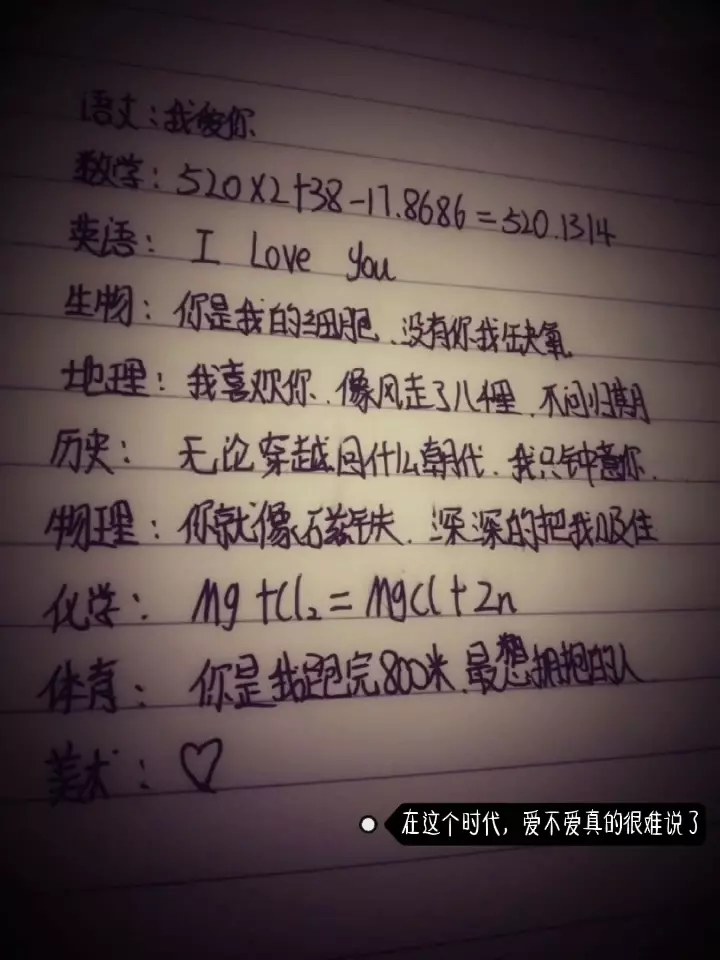 语文：我爱你
数学：520×2+38-17.8686=520.1314
英语：I Love You
生物：你是我的细胞、没有你我缺氧
地理：我喜欢你、像风走了八千里、不问归期
历史：无论穿越回什么朝代、我只钟意你、
物理：你就像磁铁、深深的把我吸住
化学：Mg+Cl₂=MgCl+2n
体育：你是我跑完800米、最想拥抱的人
美术：♡
在这个时代，爱不爱真的很难说了